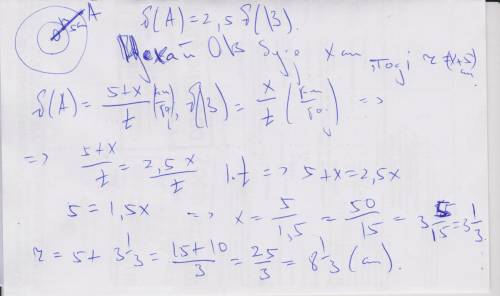 O B 5см A
δ(A) = 2,5 δ(B).
Нехай OB буде x см, тоді r = (x+5) см
δ(A) = (5+x)/t (см/год), δ(B) = x/t (см/год) =>
=> (5+x)/t = 2,5x/t |·t => 5+x = 2,5x
5 = 1,5x => x = 5/1,5 = 50/15 = 3 5/15 = 3 1/3
r = 5 + 3 1/3 = (15+10)/3 = 25/3 = 8 1/3 (см).